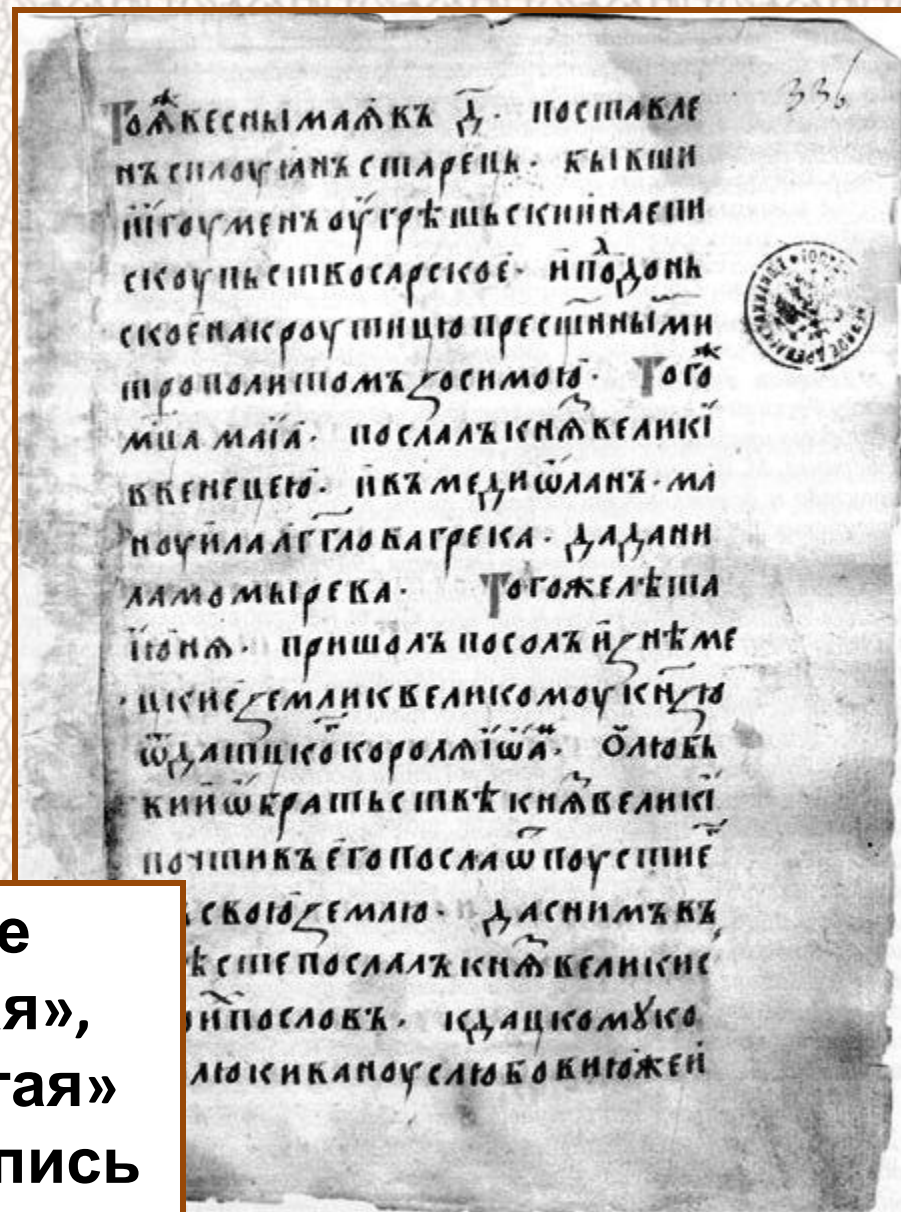 336
Тоѧ҃жвесны маѧ҃ въ д҃· поставле
нъ силоуіанъ старець· бывши
иігоуменъ оугрѣшьскии наепи
скоупьствосарское· ипо҃донь
скоенакроутицю прест҃нныими
трополитомъ ѕосимою· Того҃ж
мц҃а маіа· послалъ кнѧ҃ велики
ввенецею· ивъ медиѡланъ· ма
ноуилааг҃глова грека· дадани
ламомырева· Тогожелѣта
іюнѧ· пришолъ посолъ иѕнѣме
цкиеѕемлик великомоу кн҃ѕю
ѿдатцко҃королѧіѡ҃а· ѻлюбь
вииѡбратьствѣ кнѧ҃ велики
почтивъ его посла ѿпоустие
скоюѕемлю· даснимъ въ
ѣсте послалъ кнѧ҃ великие
ипословъ· кдацкомꙋко
люкивановеслюбовиюжеи
е
я»,
гая»
пись